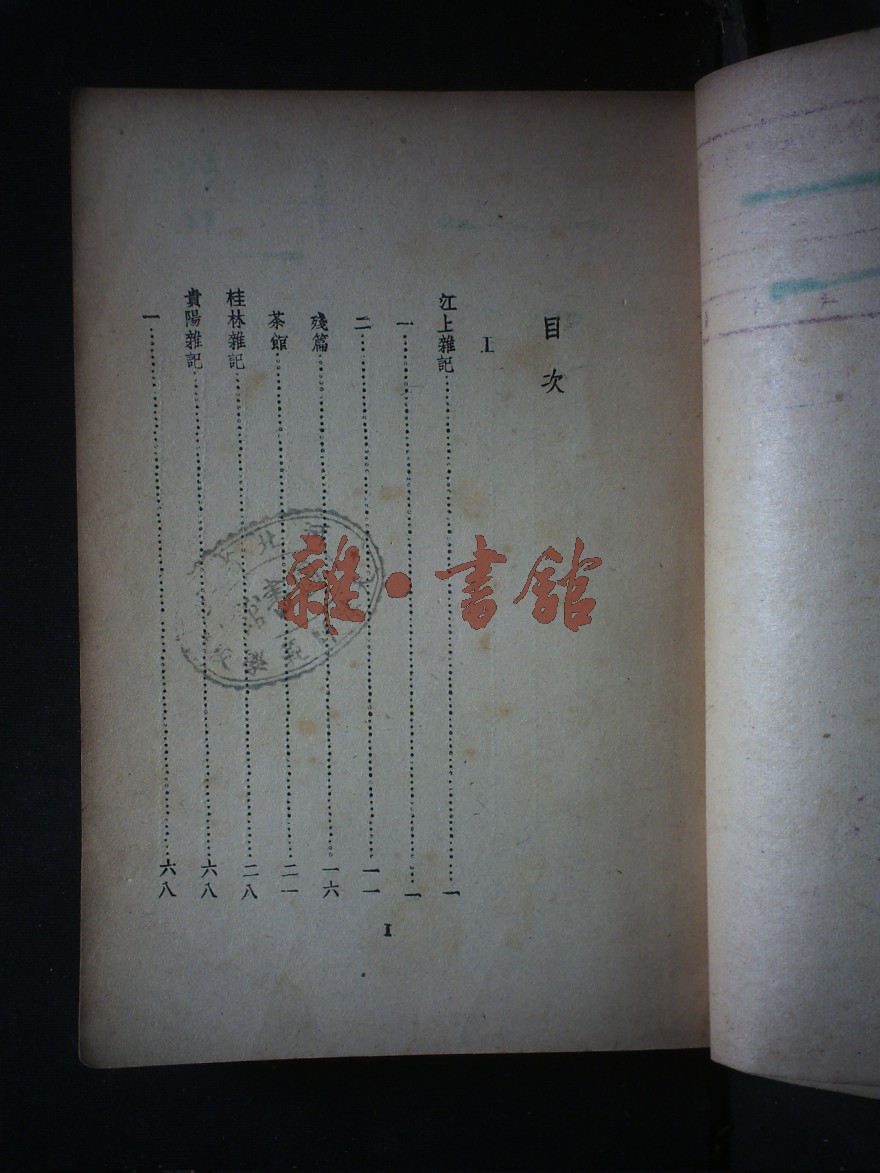 目次
I
江上雜記……一
一……一
二……一一
殘篇……一六
茶館……二一
桂林雜記……二八
貴陽雜記……六八
一……六八
I
雜·書館